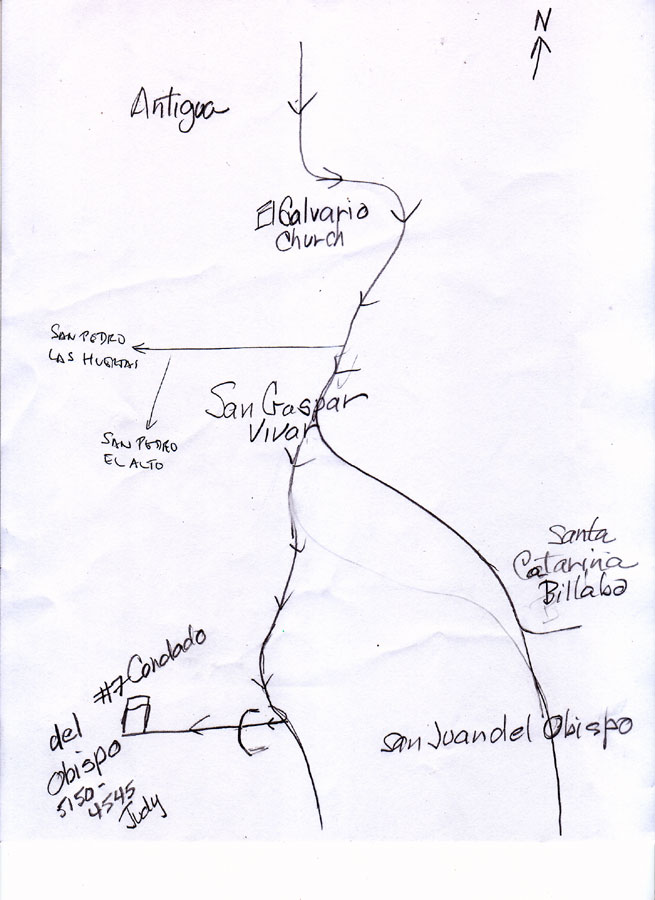 N
Antigua
El Calvario
Church
SAN PEDRO
LAS HUERTAS
San Gaspar
Vivar
SAN PEDRO
EL ALTO
Santa
Catarina
Billabo
#7 Condado
del
Obispo
5150-
4545
Judy
San Juan del Obispo